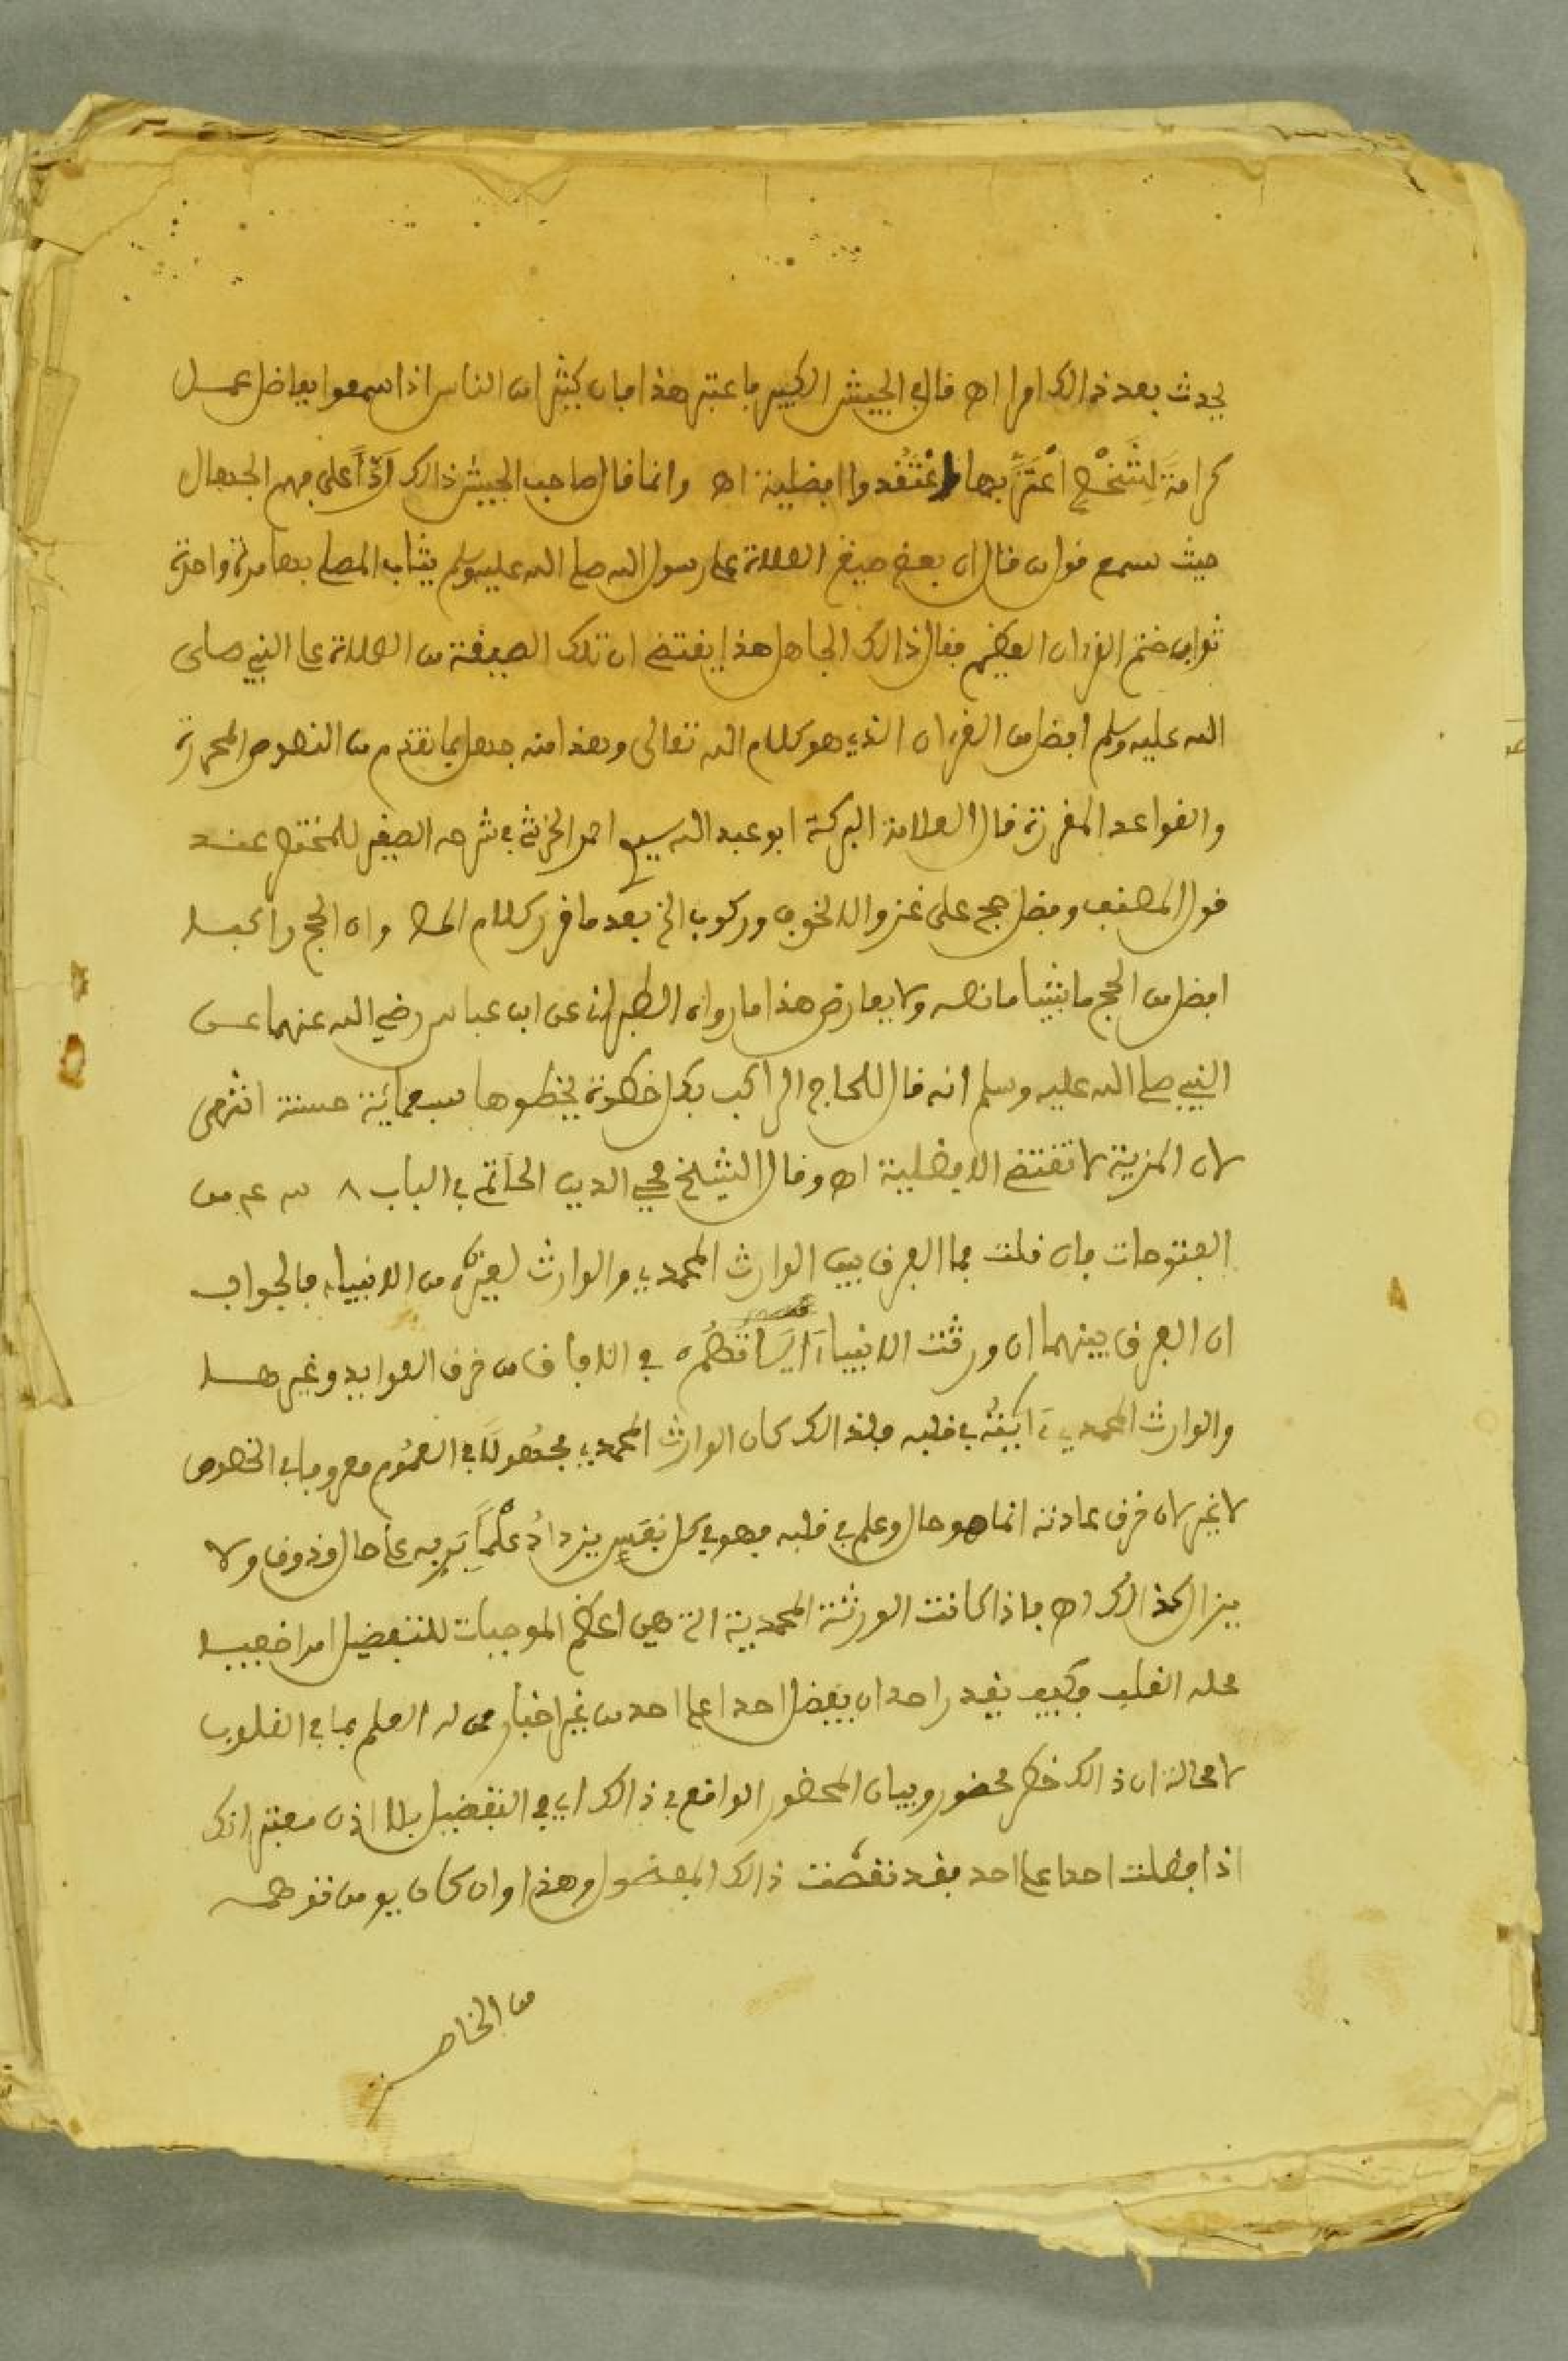 يحدث بعد ذالك امرا اه قال في الجيش الكبير فاعتبر هذا فان كثيرا من الناس اذا سمعوا بفاضل عمل
كرامةَ لِشَخْصٍ اغْتَرَّ بها واعْتَقَدوا افضلية اه وانما قال صاحب الجيش ذالك ردّاً على فهم الجهال
حيث سمع قول من قال ان بعض صيغ الصلاة على رسول الله صلى الله عليه وسلم يثاب المصلي بها مرة واحدة
ثواب ختم القرءان العظيم فقال ذالك الجاهل هذا يقتضي ان تلك الصيغة من الصلاة على النبي صلى
الله عليه وسلم افضل من القرءان الذي هو كلام الله تعالى وهذا منه جهل بما تقدم من النصوص المحررة
والقواعد المقررة قال العلامة البركة ابو عبد الله سيدي احمد الخرشي في شرحه الصغير للمختصر عند
قول المصنف وفضل حج على غزو الا لخوف وركوب الخ بعد ما قرر كلام المص وان الحج راكبا
افضل من الحج ماشيا ما نصه ولا يعارض هذا ما رواه الطبراني عن ابن عباس رضي الله عنهما عن
النبي صلى الله عليه وسلم انه قال للحاج الراكب بكل خطوة يخطوها سبعمائة حسنة انتهى
لان المزية لا تقتضي الافضلية اه وقال الشيخ محيي الدين الحاتمي في الباب ٨ من
الفتوحات فان قلت فما الفرق بين الوارث المحمدي والوارث لغيره من الانبياء فالجواب
ان الفرق بينهما ان ورثت الانبياء ءاياتهم في الافاق من خرق العوايد وغيرها
والوارث المحمدي ءايته في قلبه فلذالك كان الوارث المحمدي مجهولاً في العموم معروفا في الخصوص
لا غير لان خرق عادته انما هو حال وعلم في قلبه فهو في كل نفس يزدادُ علماً بربه علم حال وذوق ولا
يزال كذالك اه فاذا كانت الورثة المحمدية التي هي اعظم الموجبات للتفضيل امرا خفيا
محله القلب فكيف يقدر احد ان يفضل احدا على احد من غير اخبار ممن له العلم بما في القلوب
لا محالة ان ذالك خطر محضور وبيان المحضور الواقع في ذالك اي في التفضيل بلا اذن معتبر انك
اذا فضلت احدا على احد فقد نقصت ذالك المفضول وهذا وان كان يومن توهمه
من الخاصـ